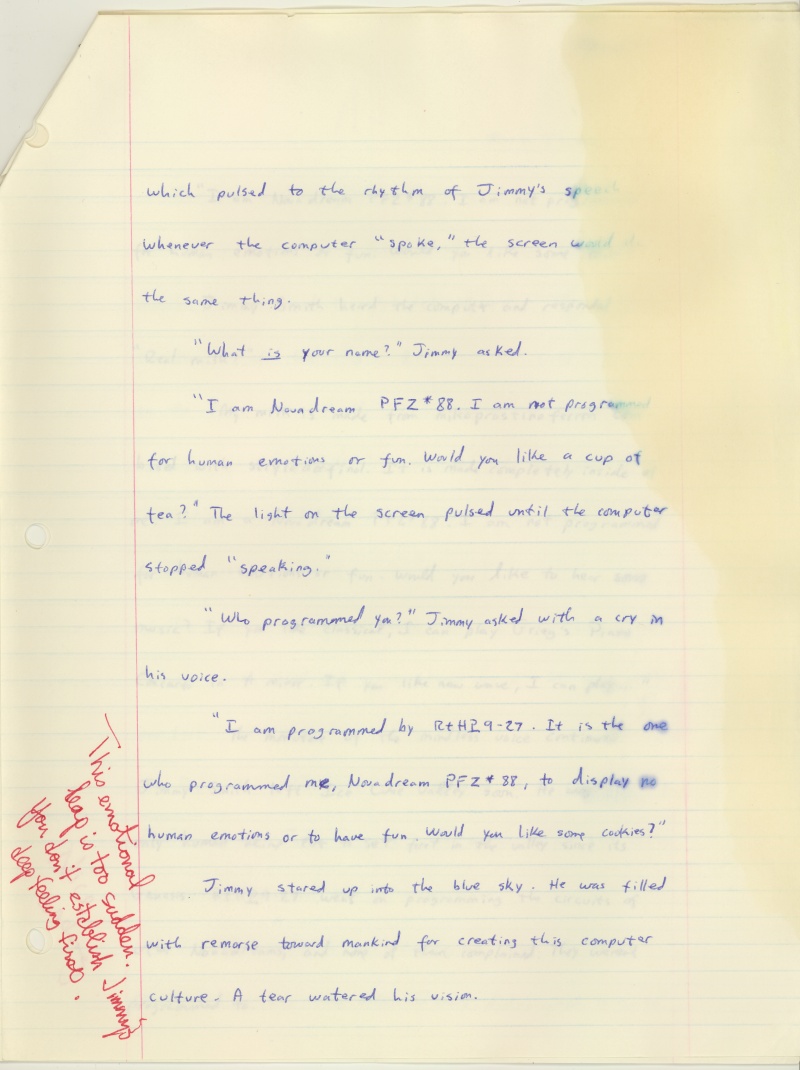 which pulsed to the rhythm of Jimmy's speech
whenever the computer "spoke," the screen would do
the same thing.
"What is your name?" Jimmy asked.
"I am Novadream PFZ*88. I am not programmed
for human emotions or fun. Would you like a cup of
tea?" The light on the screen pulsed until the computer
stopped "speaking."
"Who programmed you?" Jimmy asked with a cry in
his voice.
"I am programmed by RtHI9-27. It is the one
who programmed me, Novadream PFZ*88, to display no
human emotions or to have fun. Would you like some cookies?"
Jimmy stared up into the blue sky. He was filled
with remorse toward mankind for creating this computer
culture. A tear watered his vision.
This emotional
leap is too sudden.
You don't establish Jimmy's
deep feeling first.